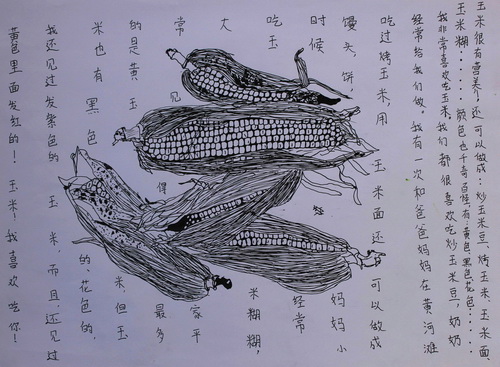 玉米很有营养！还可以做成：炒玉米豆、烤玉米、玉米面、
玉米糊……颜色也千奇百怪，有：黄色、黑色、花色……
我非常喜欢吃玉米，我们都很喜欢吃炒玉米豆，奶奶
经常给我们做。我有一次和爸爸妈妈在黄河滩
吃过烤玉米，用玉米面还可以做成
馒头，饼，妈妈小
时候经常
吃玉米糊糊，
大家平
常见得最多
的是黄玉米，但玉
米也有黑色的、花色的，
我还见过发紫色的玉米，而且还见过
黄色里面发红的！玉米！我喜欢吃你！